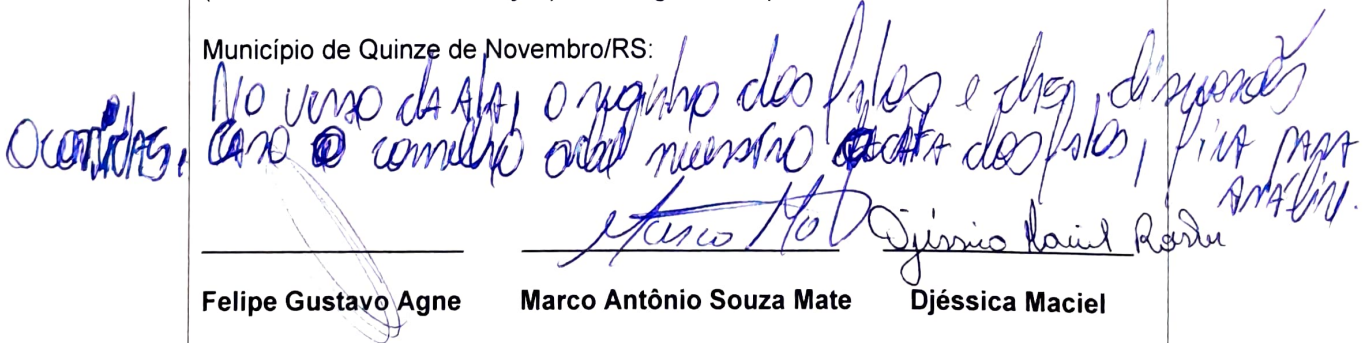 Município de Quinze de Novembro/RS:
No verso da Ata, o registro dos fatos e das discussões
Ocorridas, caso o conselho achar necessário a data dos fatos, fica para
análise.
Djéssica Maciel
Felipe Gustavo Agne Marco Antônio Souza Mate Djéssica Maciel